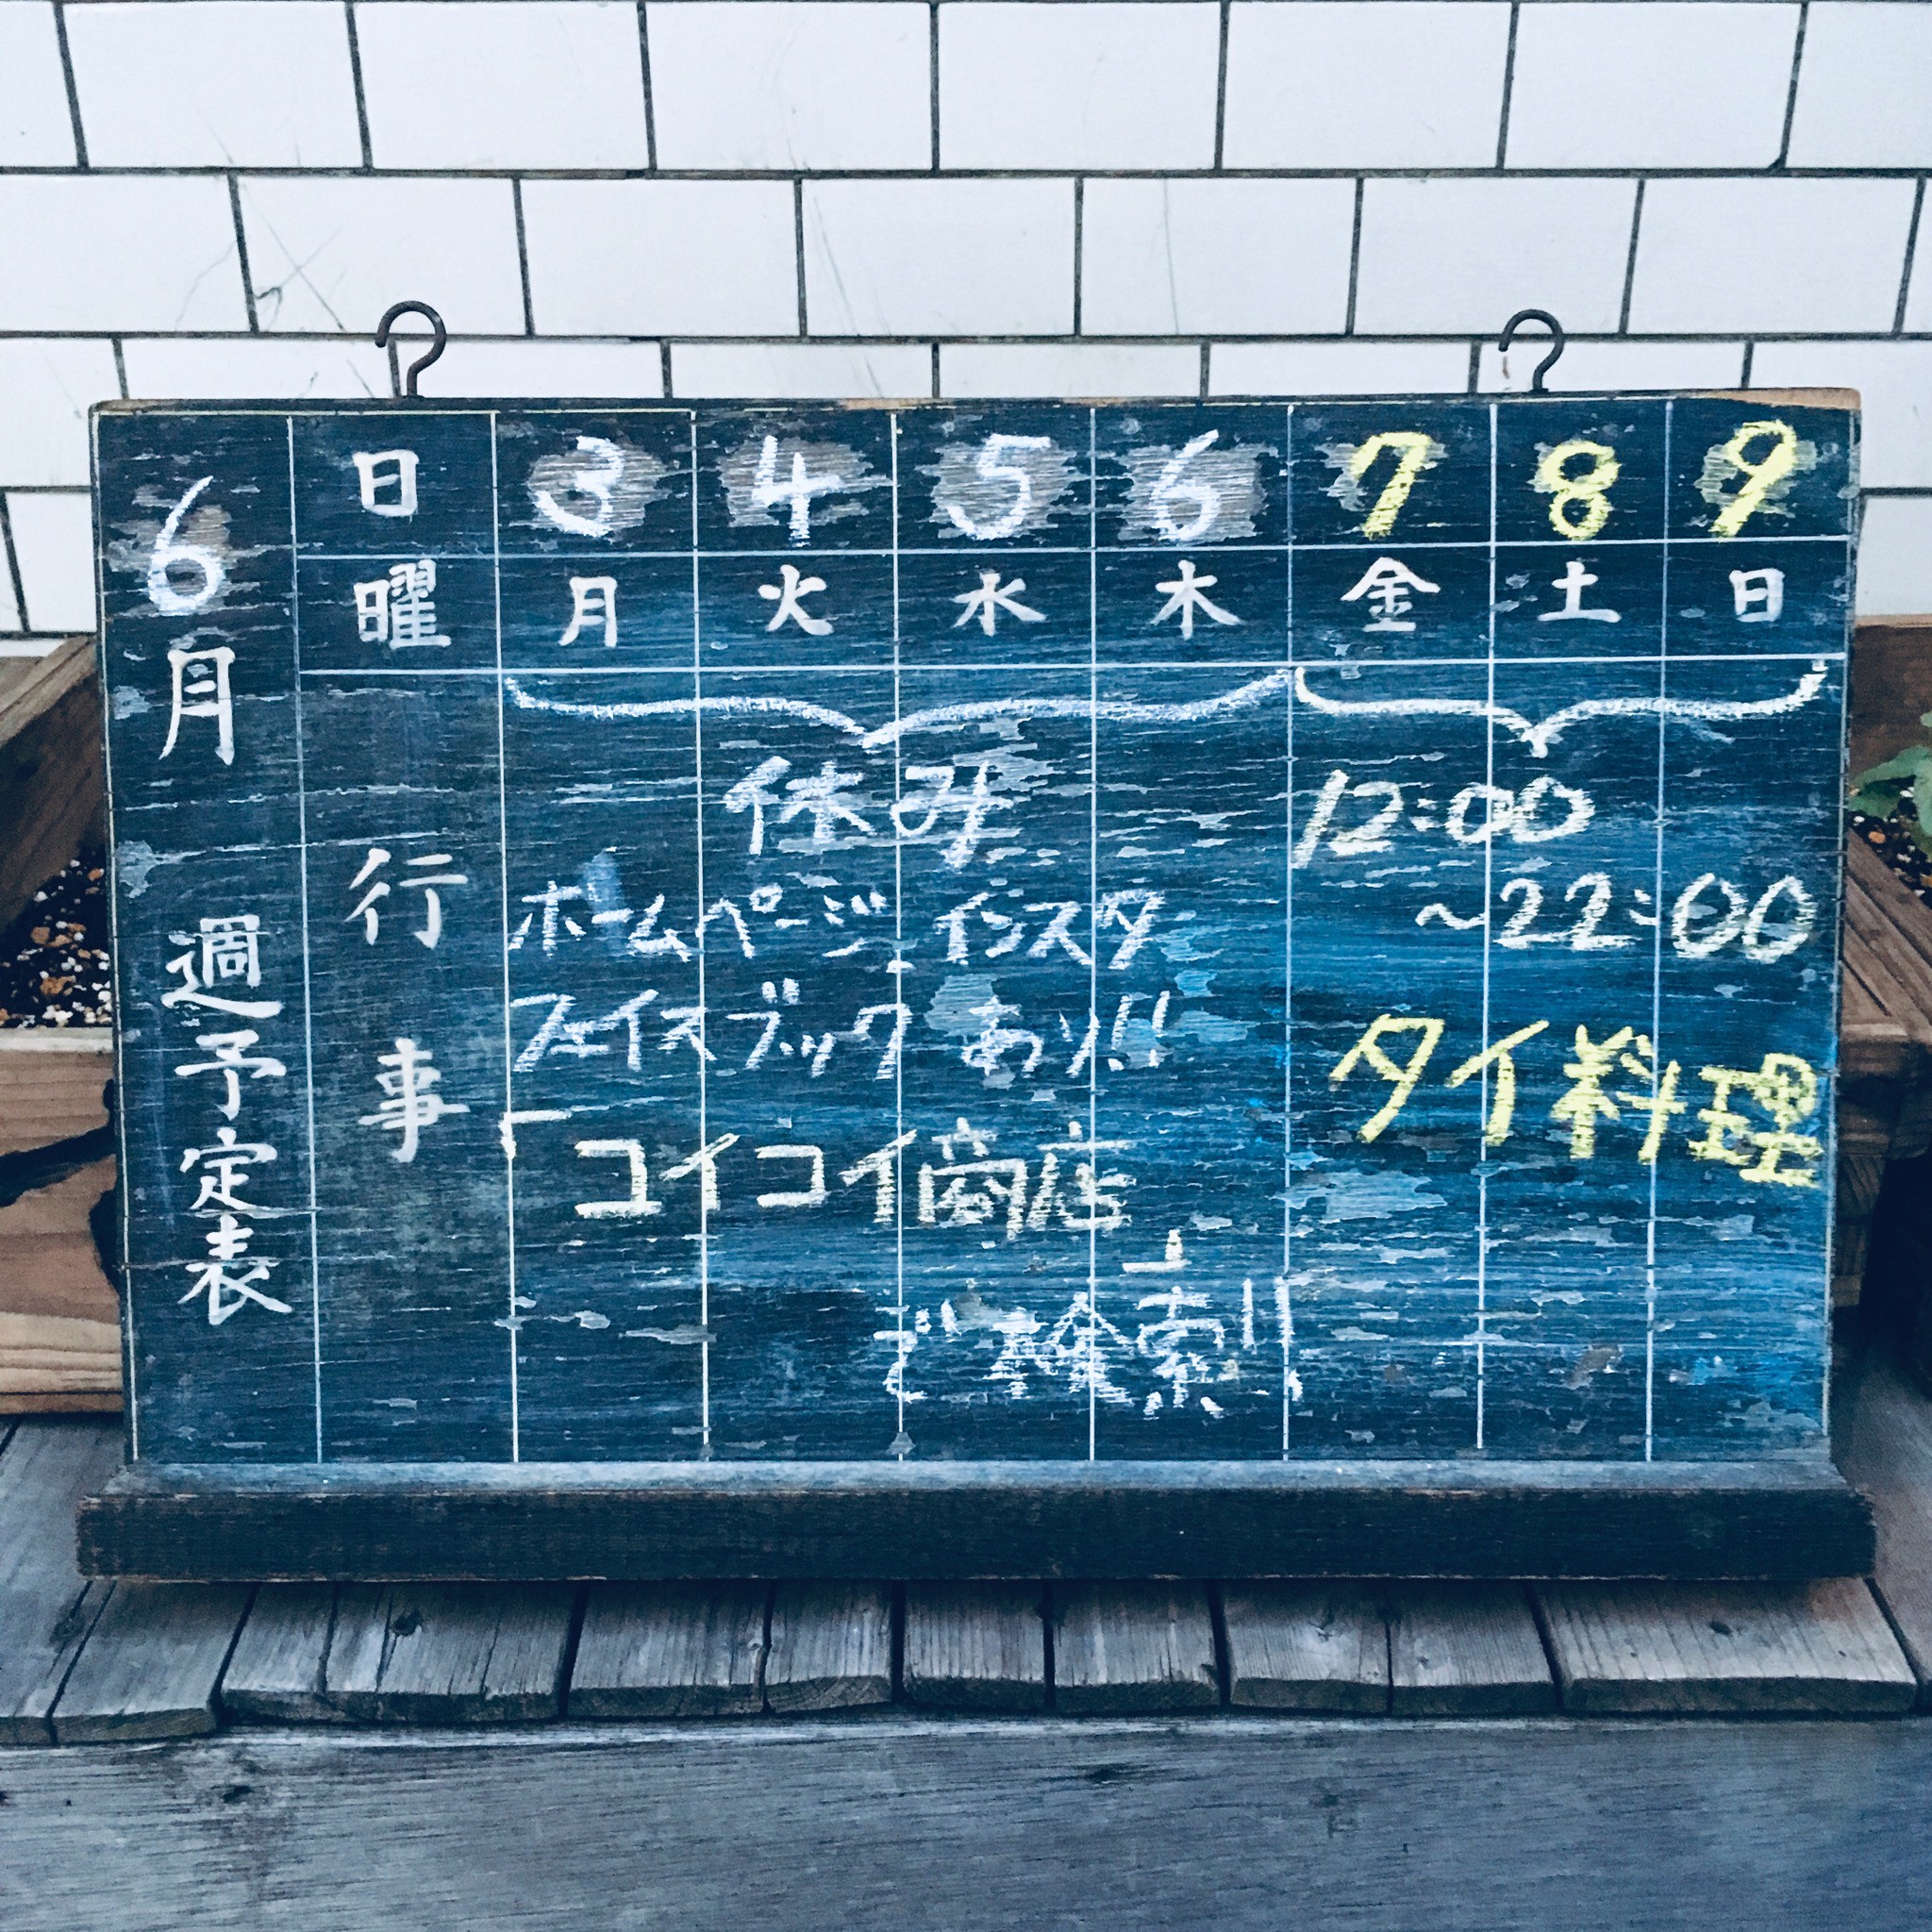 6月
週予定表
日 3 4 5 6 7 8 9
曜 月 火 水 木 金 土 日
行事
休み
ホームページ インスタ
フェイスブックあり!!
「コイコイ商店」
で検索!!
12:00
~22:00
タイ料理